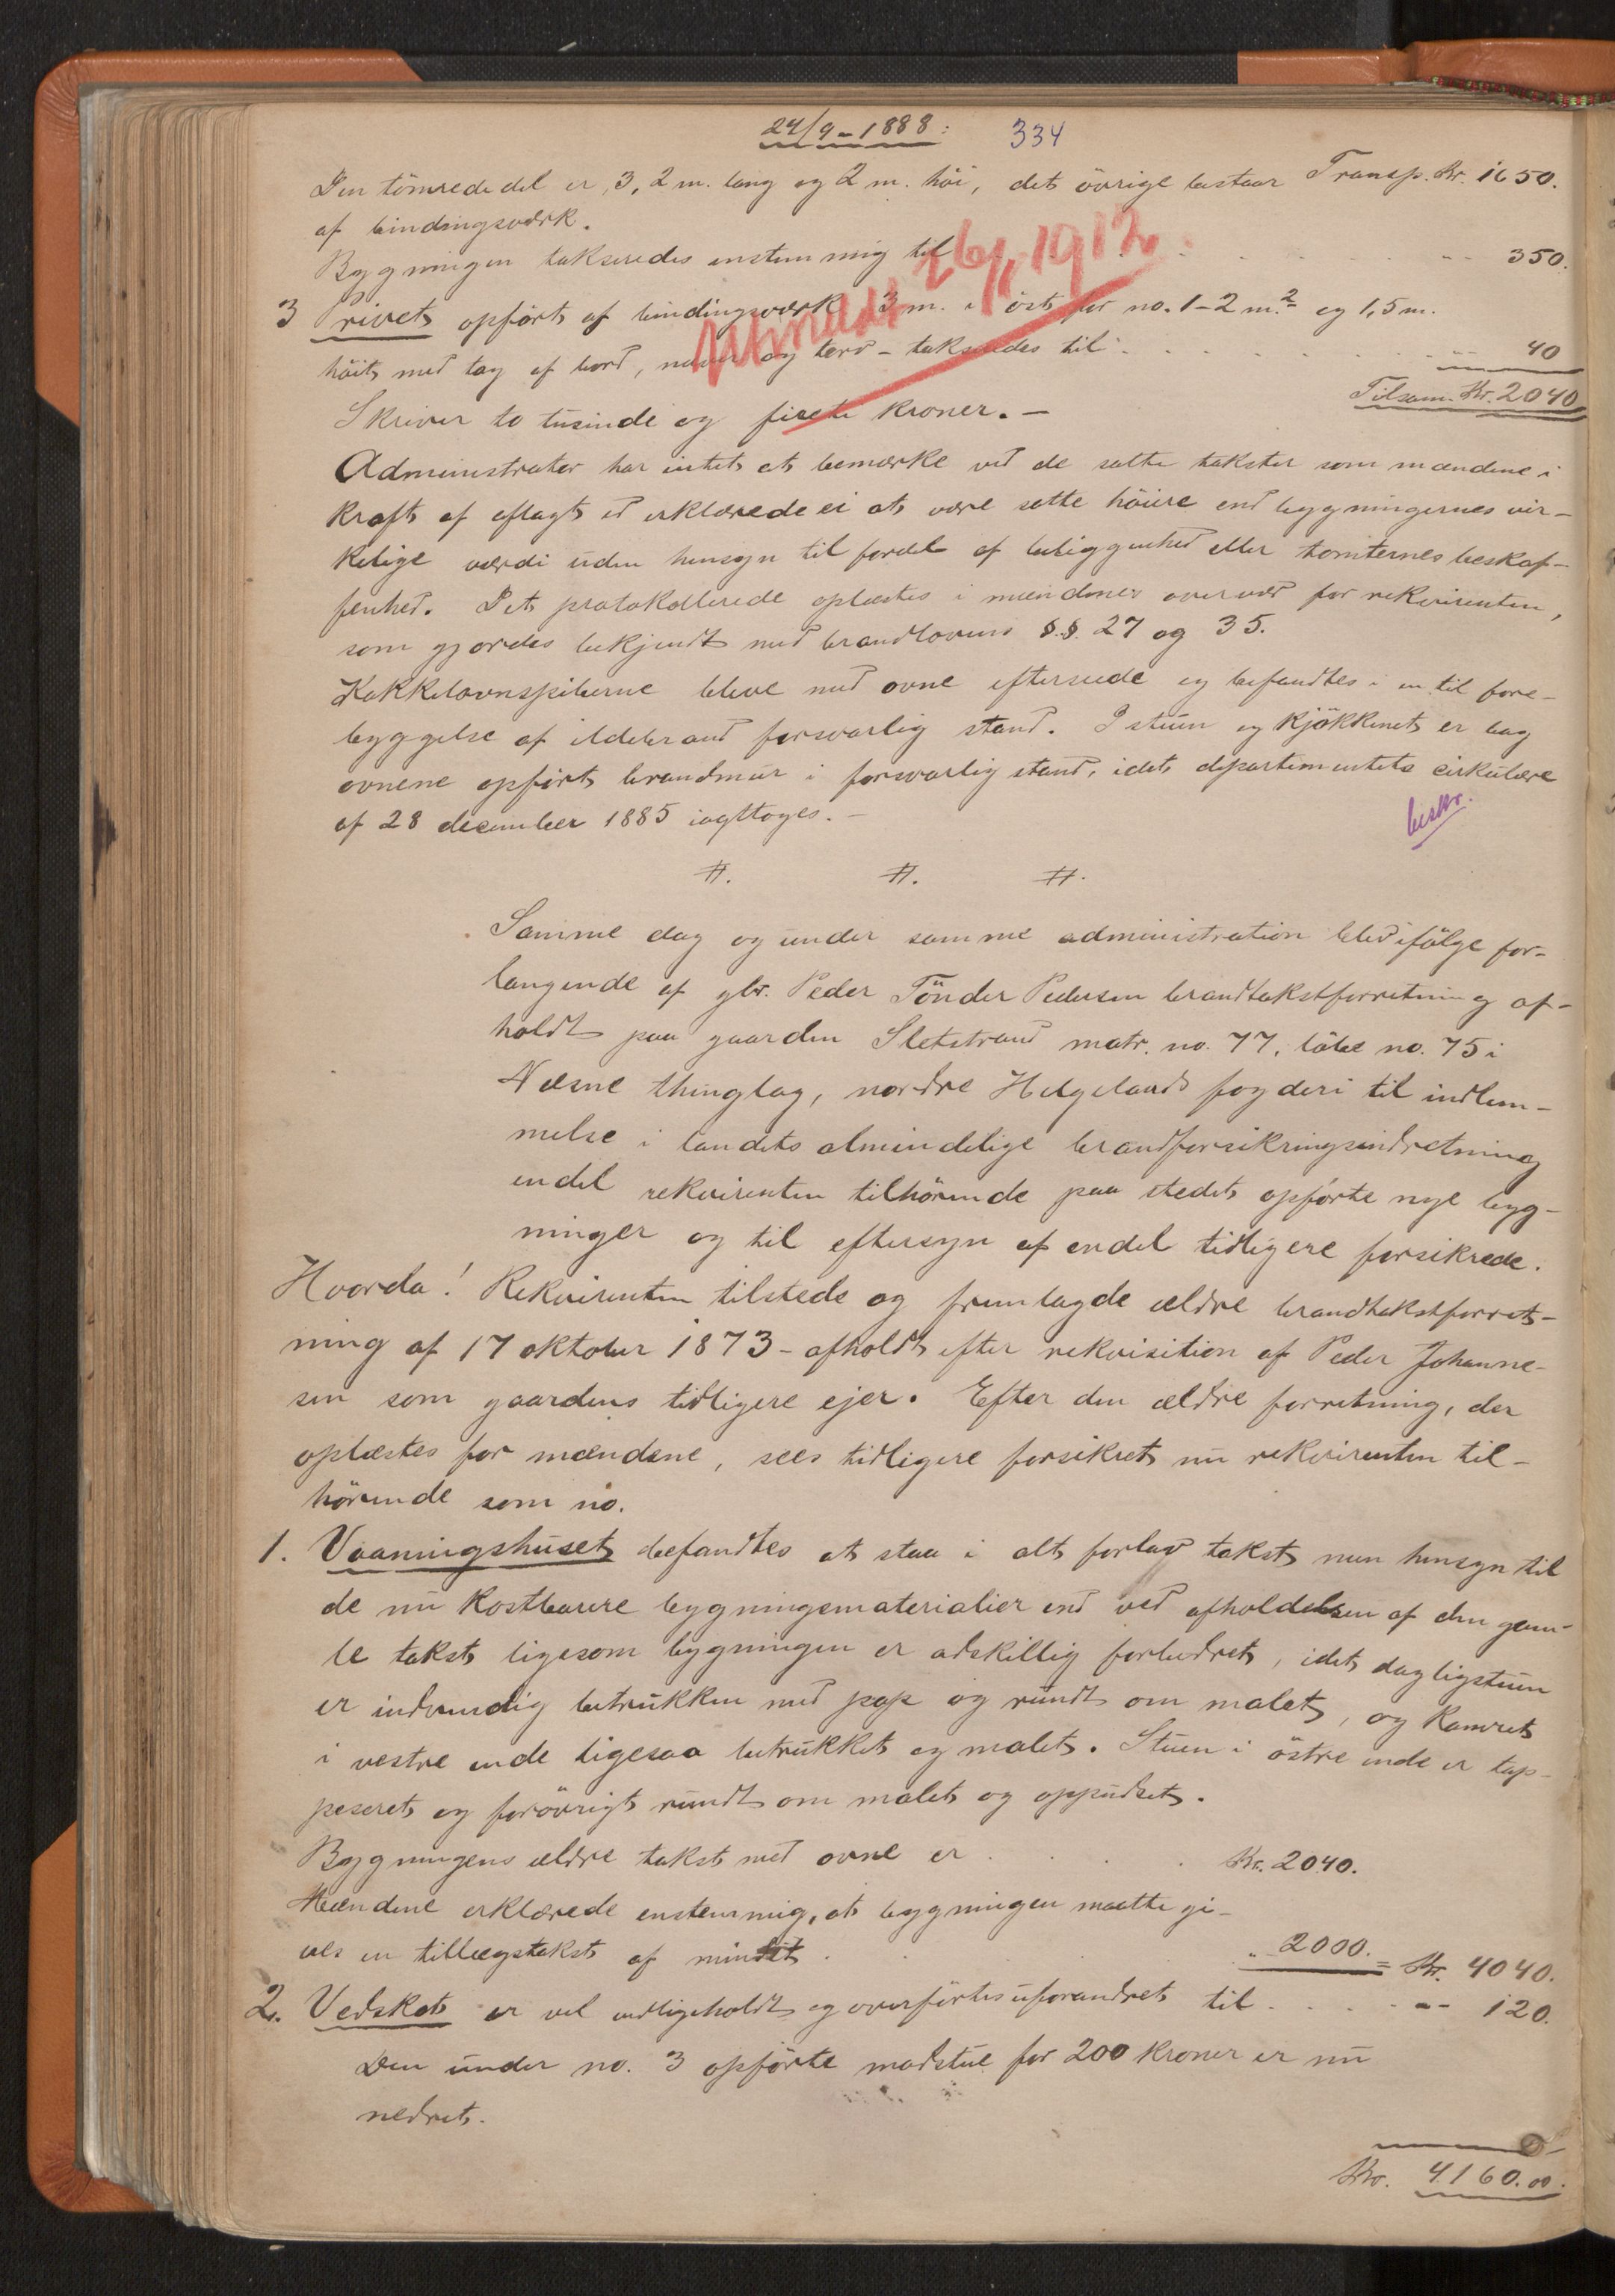 24/9-1888: 334
Den tömrede del er 3,2 m. lang og 2 m. höi, det övrige bestaar Transp. Kr. 1650.
af bindingsværk.
Bygningen takseredes enstemmig til . . . . . . . . -- 350.
3 Privet opfört af bindingsværk 3 m. i öst for no. 1 - 2 m.² og 1,5 m.
höit med tag af bord, næver og torv - takseredes til . . . . . . . . -- 40
Tilsam. Kr. 2040
Skriver to tusinde og fireti kroner. -
Utmeldt 26/11 1912.
Administrator har intet at bemærke ved de satte takster som mændene i
kraft af aflagt ed erklærede ei at være satte höiere end bygningernes vir-
kelige værdi uden hensyn til fordel af beliggenhed eller tomternes beskaf-
fenhed. Det protokollerede oplæstes i mændenes overvær for rekvirenten,
som gjordes bekjendt med brandlovens §.§. 27 og 35.
Kakkelovnspiberne bleve med ovne efterseede og befandtes i en til fore-
byggelse af ildebrand forsvarlig stand. I stuen og kjökkenet er bag
ovnene opfört brandmur i forsvarlig stand, idet departementets cirkulære
af 28 december 1885 iagttoges. -
beskr.
#. #. #.
Samme dag og under samme administration blev ifölge for-
langende af gbr. Peder Tönder Pedersen brandtakstforretning af-
holdt paa gaarden Sletstrand matr. no. 77, löbe no. 75 i
Næsne thinglag, nordre Helgelands fogderi til indlem-
melse i landets almindelige brandforsikringsindretning
endel rekvirenten tilhörende paa stedet opförte nye byg-
ninger og til eftersyn af endel tidligere forsikrede.
Hvorda! Rekvirenten tilstede og fremlagde ældre brandtakstforret-
ning af 17 oktober 1873 - afholdt efter rekvisition af Peder Johanne-
sen som gaardens tidligere ejer. Efter den ældre forretning, der
oplæstes for mændene, sees tidligere forsikret nu rekvirenten til-
hörende som no.
1. Vaaningshuset befandtes at staa i alt forlav takst nun hensyn til
de nu kostbarere bygningsmaterialier end ved afholdelsen af den gam-
le takst ligesom bygningen er adskillig forbedret, idet dagligstuen
er indvendig betrukken med pap og rundt om malet, og kamret
i vestre ende ligesaa betrukket og malet. Stuen i östre ende er tap-
peseret og forövrigt rundt om malet og oppudset.
Bygningens ældre takst med ovne er . . . . Kr. 2040.
Mændene erklærede enstemmig, at bygningen maatte gi-
ves en tillægstakst af mindst . . . " 2000. = Kr. 4040.
2. Vedskot er vel vedligeholdt og overförtes uforandret til . . . . . -- 120.
Den under no. 3 opförte madstue for 200 kroner er nu
nedret.
Kr. 4160.00.